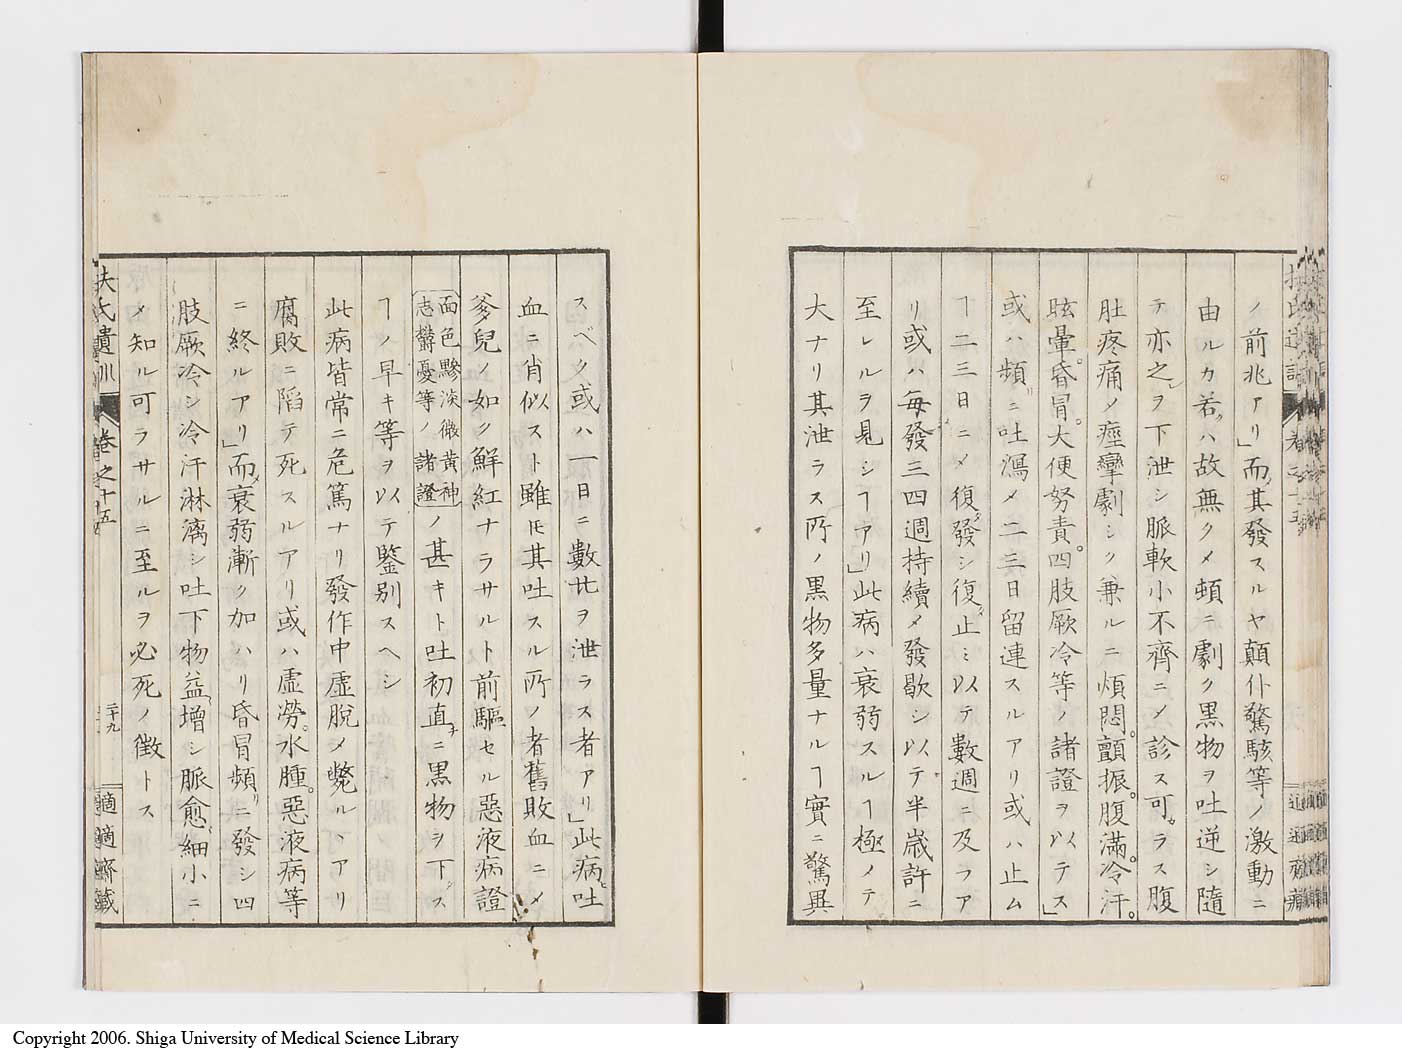 ノ前兆アリ」而其發スルヤ顛仆驚駭等ノ激動ニ
由ルカ若ハ故無クメ頓ニ劇ク黒物ヲ吐逆シ隨
テ亦之ヲ下泄シ脈軟小不齊ニメ診ス可ラス腹
肚疼痛メ痙攣劇シク兼ルニ煩悶。顫振。腹滿。冷汗。
眩暈。昏冒。大便努責。四肢厥冷等ノ諸證ヲ以テス」
或ハ頻ニ吐瀉メ二三日留連スルアリ或ハ止ム
ヿ二三日ニメ復發シ復止ミ以テ數週ニ及フア
リ或ハ毎發三四週持續メ發歇シ以テ半歳許ニ
至レルヲ見シヿアリ」此病ハ衰弱スルヿ極メテ
大ナリ其泄ラス所ノ黒物多量ナルヿ實ニ驚異
スベク或ハ一日ニ數廿ヲ泄ラス者アリ」此病吐
血ニ肖似スト雖𪜈其吐スル所ノ者舊敗血ニメ
爹兒ノ如ク鮮紅ナラサルト前驅セル惡液病證
面色黲淡微黄神
志欝憂等ノ諸證
ノ甚キト吐初直ニ黒物ヲ下ス
ヿノ早キ等ヲ以テ鑒別スヘシ
此病皆常ニ危篤ナリ發作中虚脱メ斃ルヽアリ
腐敗ニ陷テ死スルアリ或ハ虚勞。水腫。惡液病等
ニ終ルアリ」而衰弱漸ク加ハリ昏冒頻ニ發シ四
肢厥冷シ冷汗淋漓シ吐下物益増シ脈愈細小ニ
メ知ル可ラサルニ至ルヲ必死ノ徴トス
扶氏遺訓
卷之十五
二十九
適適齋藏
Copyright 2006. Shiga University of Medical Science Library